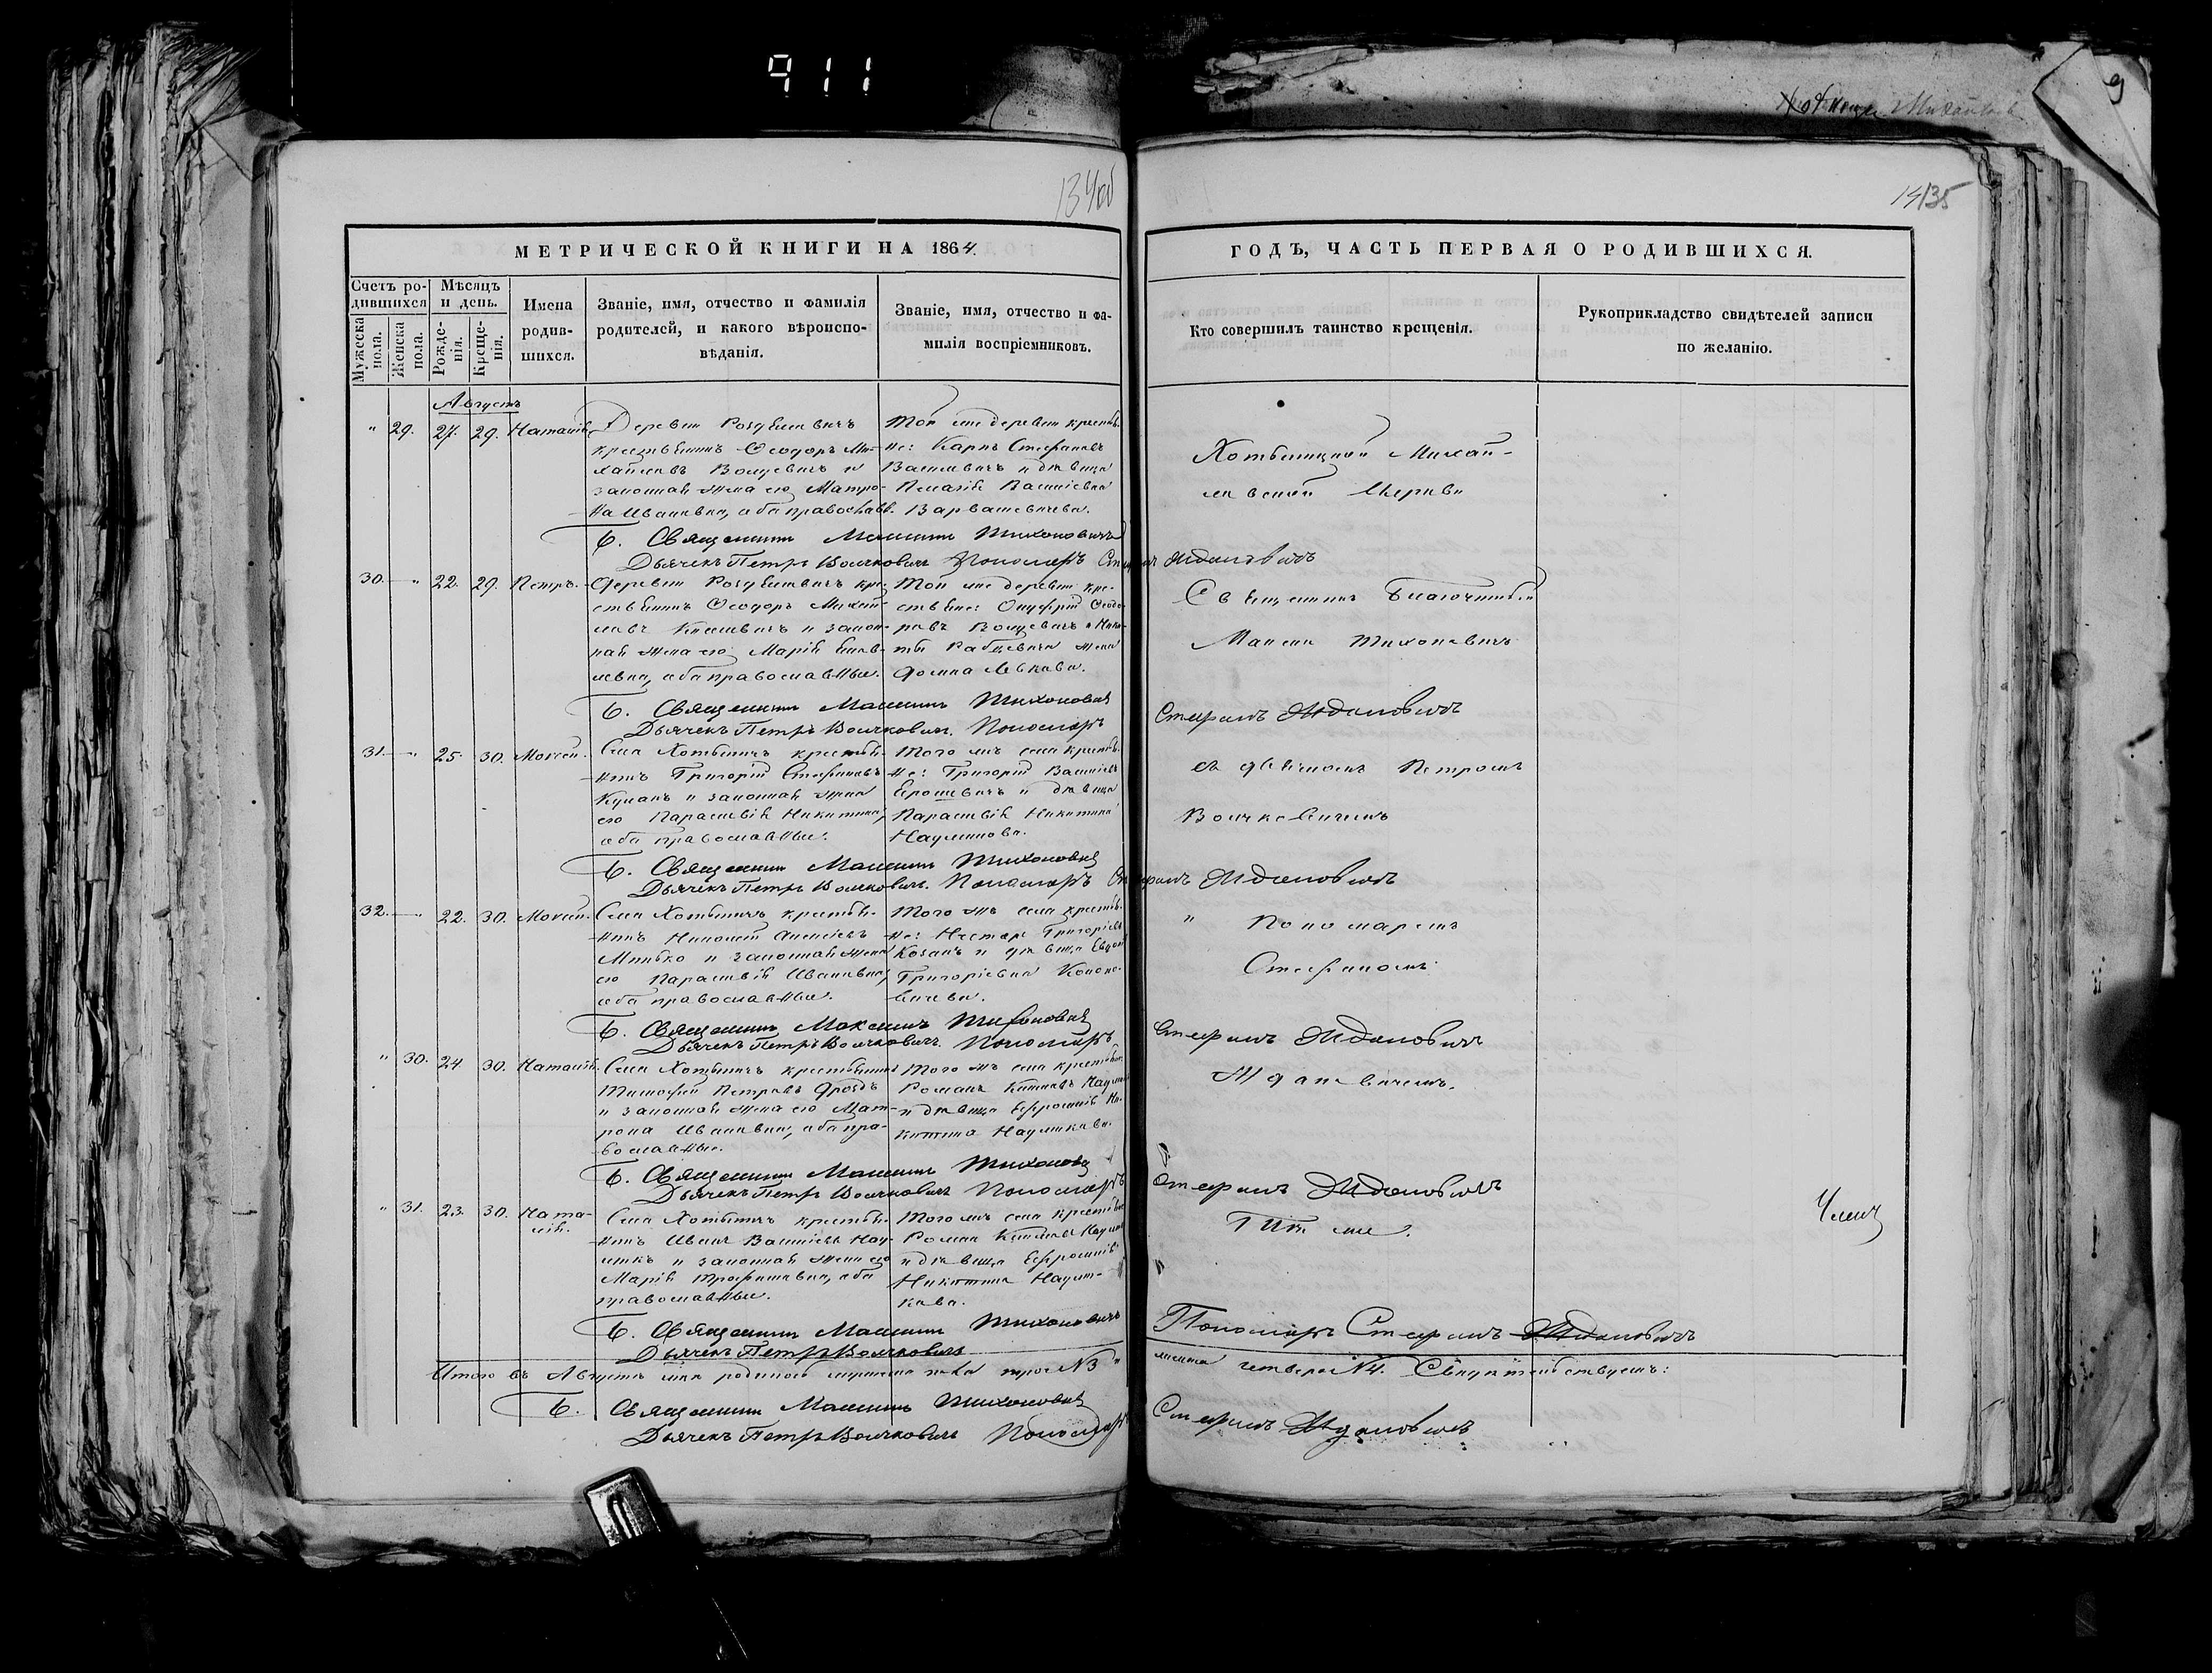 911
9
134об
14 135
МЕТРИЧЕСКОЙ КНИГИ НА 1864.
ГОДЪ, ЧАСТЬ ПЕРВАЯ О РОДИВШИХСЯ.
Счетъ ро-
дившихся
Мужеска пола.
Женска пола.
Мѣсяцъ и день.
Рожде-
нія.
Креще-
нія.
Имена
родив-
шихся.
Званіе, имя, отчество и фамилія
родителей, и какого вѣроиспо-
вѣданія.
Званіе, имя, отчество и фа-
милія воспріемниковъ.
Кто совершилъ таинство крещенія.
Рукоприкладство свидѣтелей записи
по желанію.
Августъ
" 29. 27. 29. Наталія
Деревни
крестьянинъ Ѳеодоръ Ми-
хайловъ Волцевичъ и
законная жена его Матро-
на Иванова, оба православ.
Той же деревни крестья.
не: Карпъ Стефановъ
Василевичъ и дѣвица
Пелагія Василіева
Варвашевичева.
Хотыницкой Михай-
ловской Церкви
Священникъ Максимъ Тихоновичъ
Дьячекъ Петръ Волчковичъ Пономарь Стефанъ Ждановичъ
30. " 22. 29. Петръ.
Деревни кре-
стьянинъ Ѳеодоръ Михай-
ловъ и закон-
ная жена его Марія
оба православные.
Той же деревни кре-
стьяне: Онуфрій Ѳеодо-
ровъ Волцевичъ и
жена
Домна Львова.
Священникъ Благочинный
Максимъ Тихоновичъ
Священникъ Максимъ Тихоновичъ
Дьячекъ Петръ Волчковичъ. Пономарь Стефанъ Ждановичъ
31. " 25. 30. Моисей.
Села Хотыничъ крестья-
нинъ Григорій Стефановъ
и законная жена
его Параскевія Никитина,
оба православные.
Того же села крестья.
не: Григорій Василіевъ
Ерошевичъ и дѣвица
Параскевія Никитина
Наумикова.
съ дьячкомъ Петромъ
Волчковичемъ
Священникъ Максимъ Тихоновичъ
Дьячекъ Петръ Волчковичъ. Пономарь Стефанъ Ждановичъ
32. " 22. 30. Моисей.
Села Хотыничъ крестья-
нинъ Алексіевъ
и законная жена
его Параскевія Иванова,
оба православные.
Того же села крестья.
не: Несторъ Григоріевъ
Козакъ и дѣвица
Григоріевна Конона-
вичева.
" Пономаремъ
Стефаномъ
Священникъ Максимъ Тихоновичъ
Дьячекъ Петръ Волчковичъ. Пономарь Стефанъ Ждановичъ
" 30. 24. 30. Наталія.
Села Хотыничъ крестьянинъ
Тимофей Петровъ Дроздъ
и законная жена его Мат-
рона Иванова, оба пра-
вославные.
Того же села крестьяне
Романъ
и дѣвица Ефросинія Ни-
китина Наумикова.
Ждановичемъ.
Священникъ Максимъ Тихоновичъ
Дьячекъ Петръ Волчковичъ Пономарь Стефанъ Ждановичъ
" 31. 23. 30. Ната-
лія.
Села Хотыничъ крестья-
нинъ Иванъ Василіевъ Нау-
микъ и законная жена его
Марія Трофимова, оба
православные.
Того же села крестьяне
Романъ
и дѣвица Ефросинія
Никитина Науми-
кова.
Тѣ же.
Священникъ Максимъ Тихоновичъ
Дьячекъ Петръ Волчковичъ
Пономарь Стефанъ Ждановичъ
Итого въ Августѣ родилось мужеска пола трое №3 женска четверо №4. Свидѣтельствуемъ:
Священникъ Максимъ Тихоновичъ
Дьячекъ Петръ Волчковичъ Пономарь Стефанъ Ждановичъ